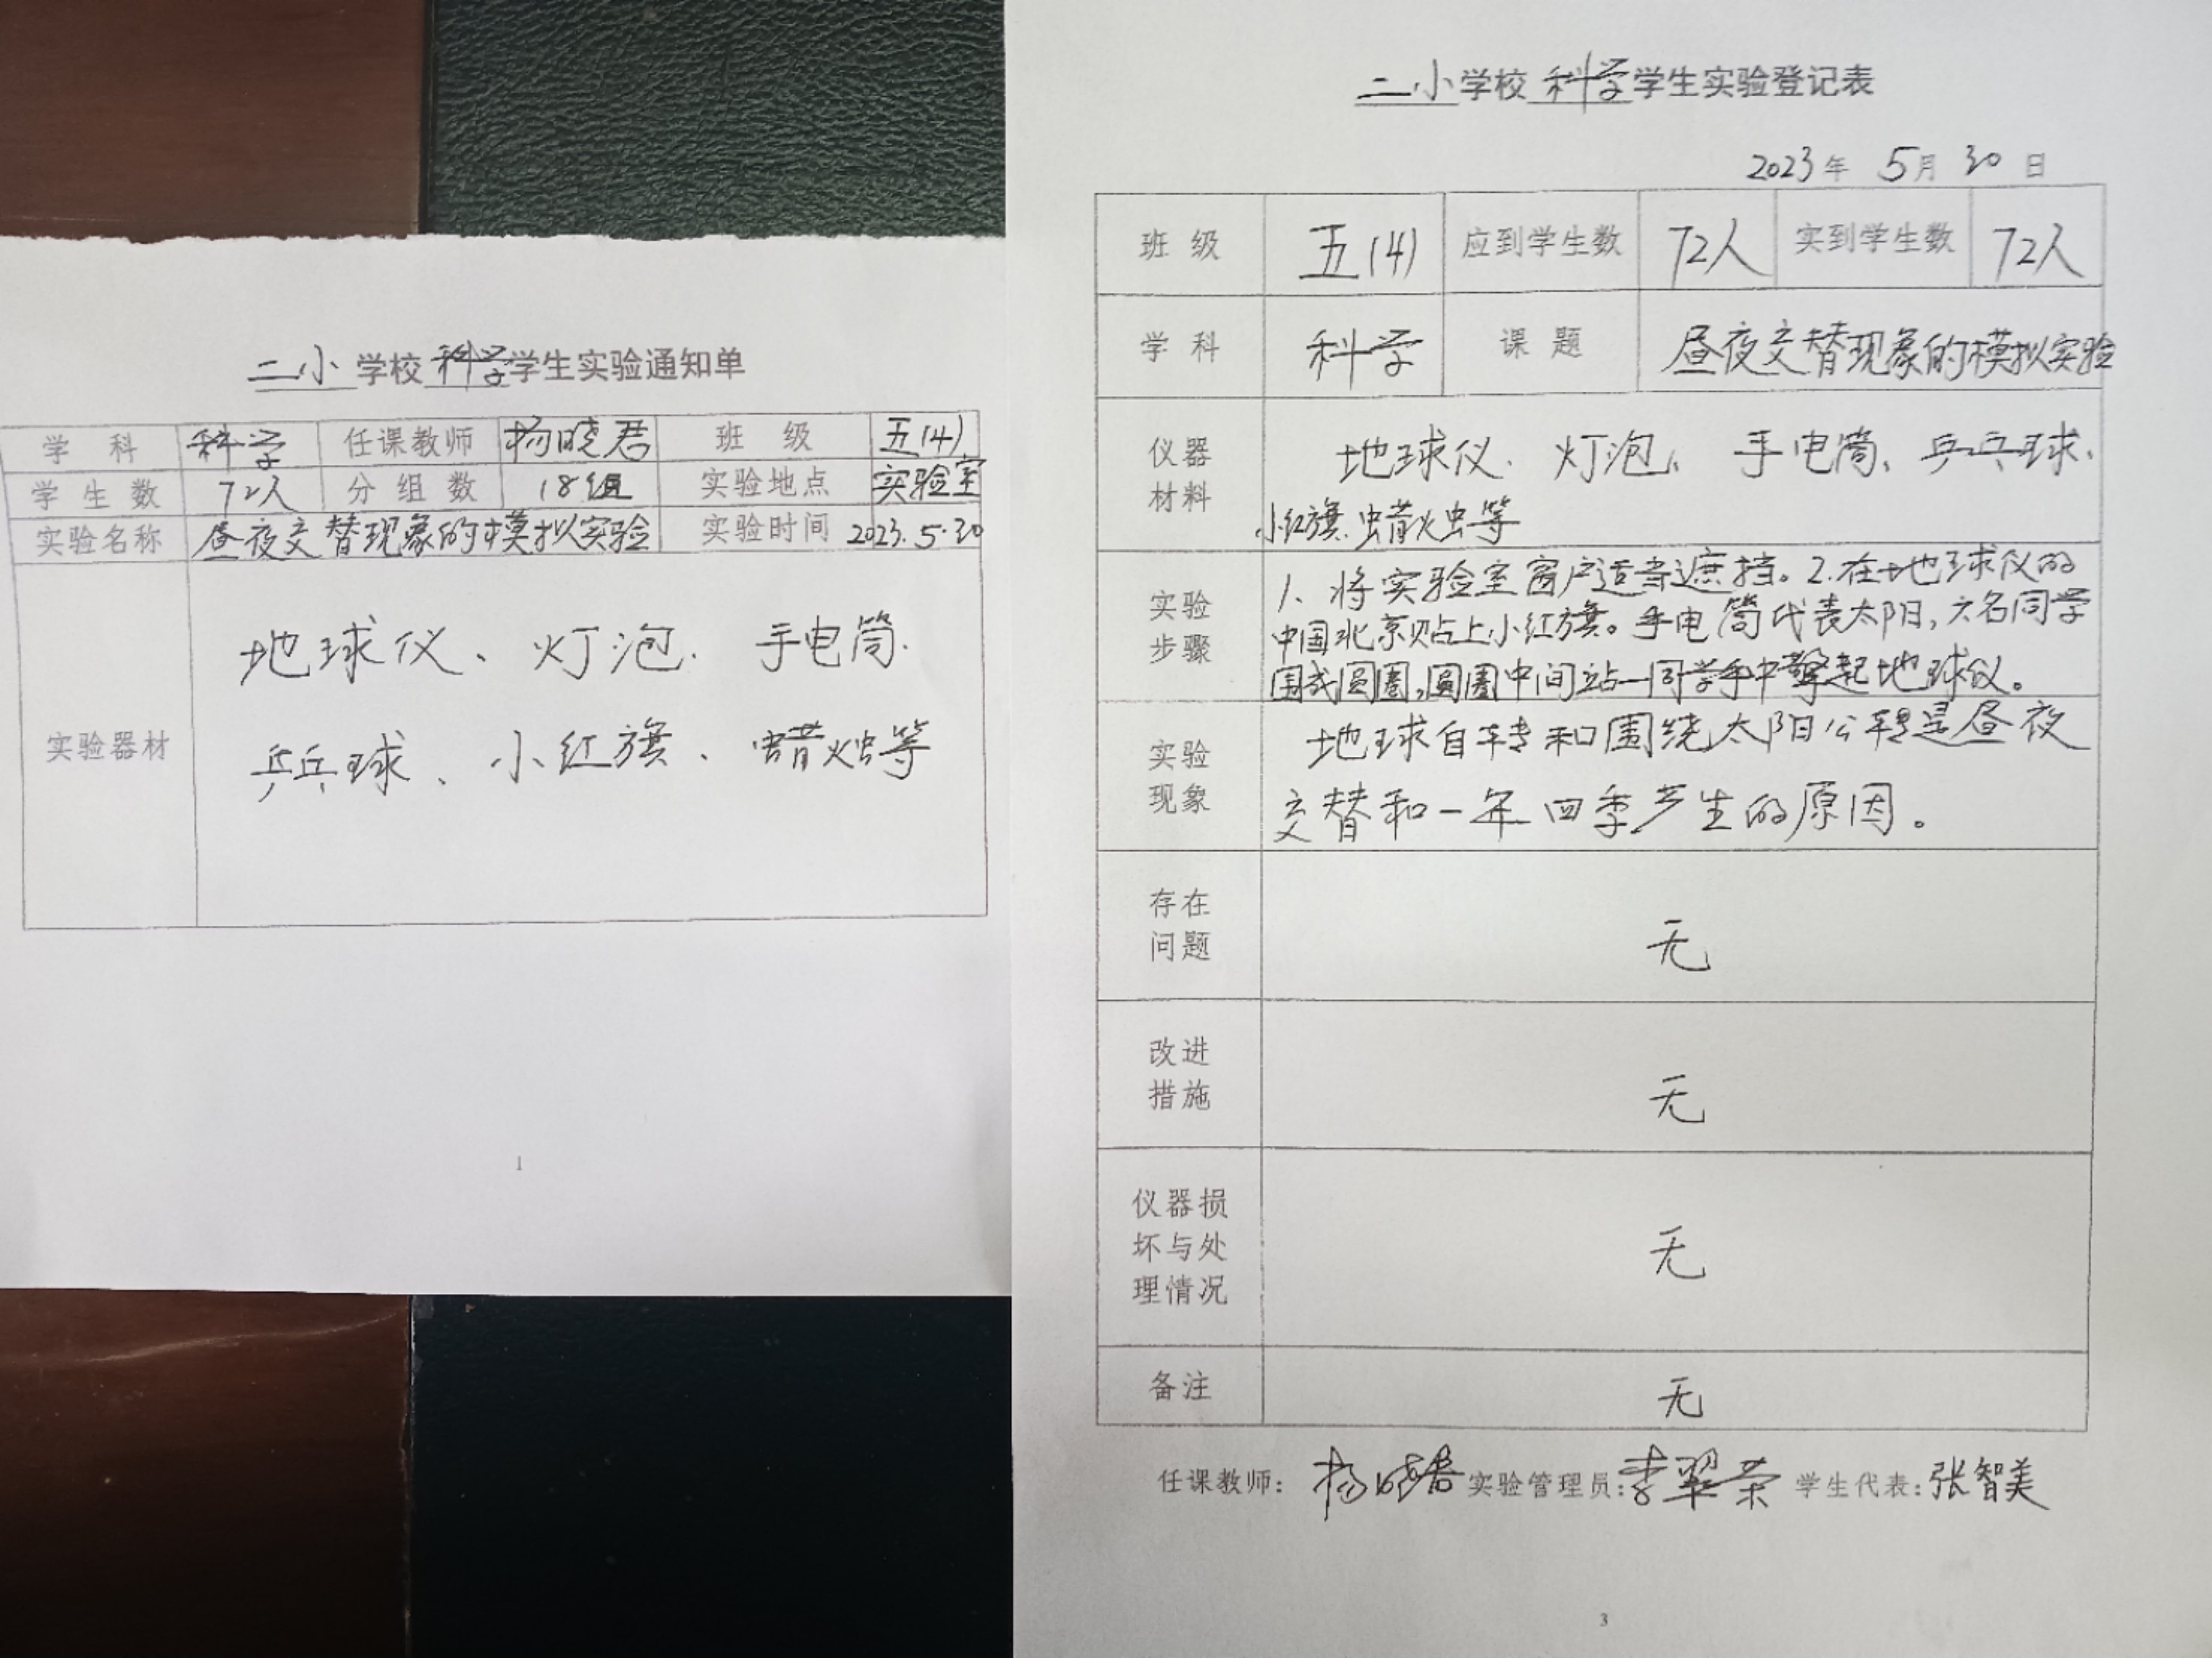 二小学校科学学生实验通知单
学科 科学 任课教师 杨晓君 班级 五(4)
学生数 72人 分组数 18组 实验地点 实验室
实验名称 昼夜交替现象的模拟实验 实验时间 2023.5.30
实验器材
地球仪、灯泡、手电筒、
乒乓球、小红旗、蜡烛等
1
二小学校科学学生实验登记表
2023年 5月 30日
班级 五(4) 应到学生数 72人 实到学生数 72人
学科 科学 课题 昼夜交替现象的模拟实验
仪器
材料
地球仪、灯泡、手电筒、乒乓球、
小红旗、蜡烛等
实验
步骤
1、将实验室窗户适当遮挡。2.在地球仪的
中国北京贴上小红旗。手电筒代表太阳,六名同学
围成圆圈,圆圈中间站一同学手中擎起地球仪。
实验
现象
地球自转和围绕太阳公转是昼夜
交替和一年四季产生的原因。
存在
问题
无
改进
措施
无
仪器损
坏与处
理情况
无
备注 无
任课教师: 杨晓君 实验管理员: 李翠荣 学生代表: 张智美
3